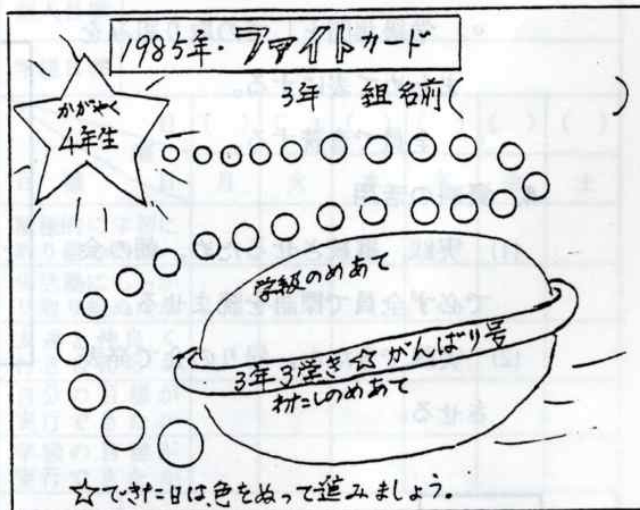 1985年・ファイトカード
3年 組名前( )
かがやく
4年生
学級のめあて
3年3学き☆がんばり号
わたしのめあて
☆できた日は、色をぬって進みましょう。